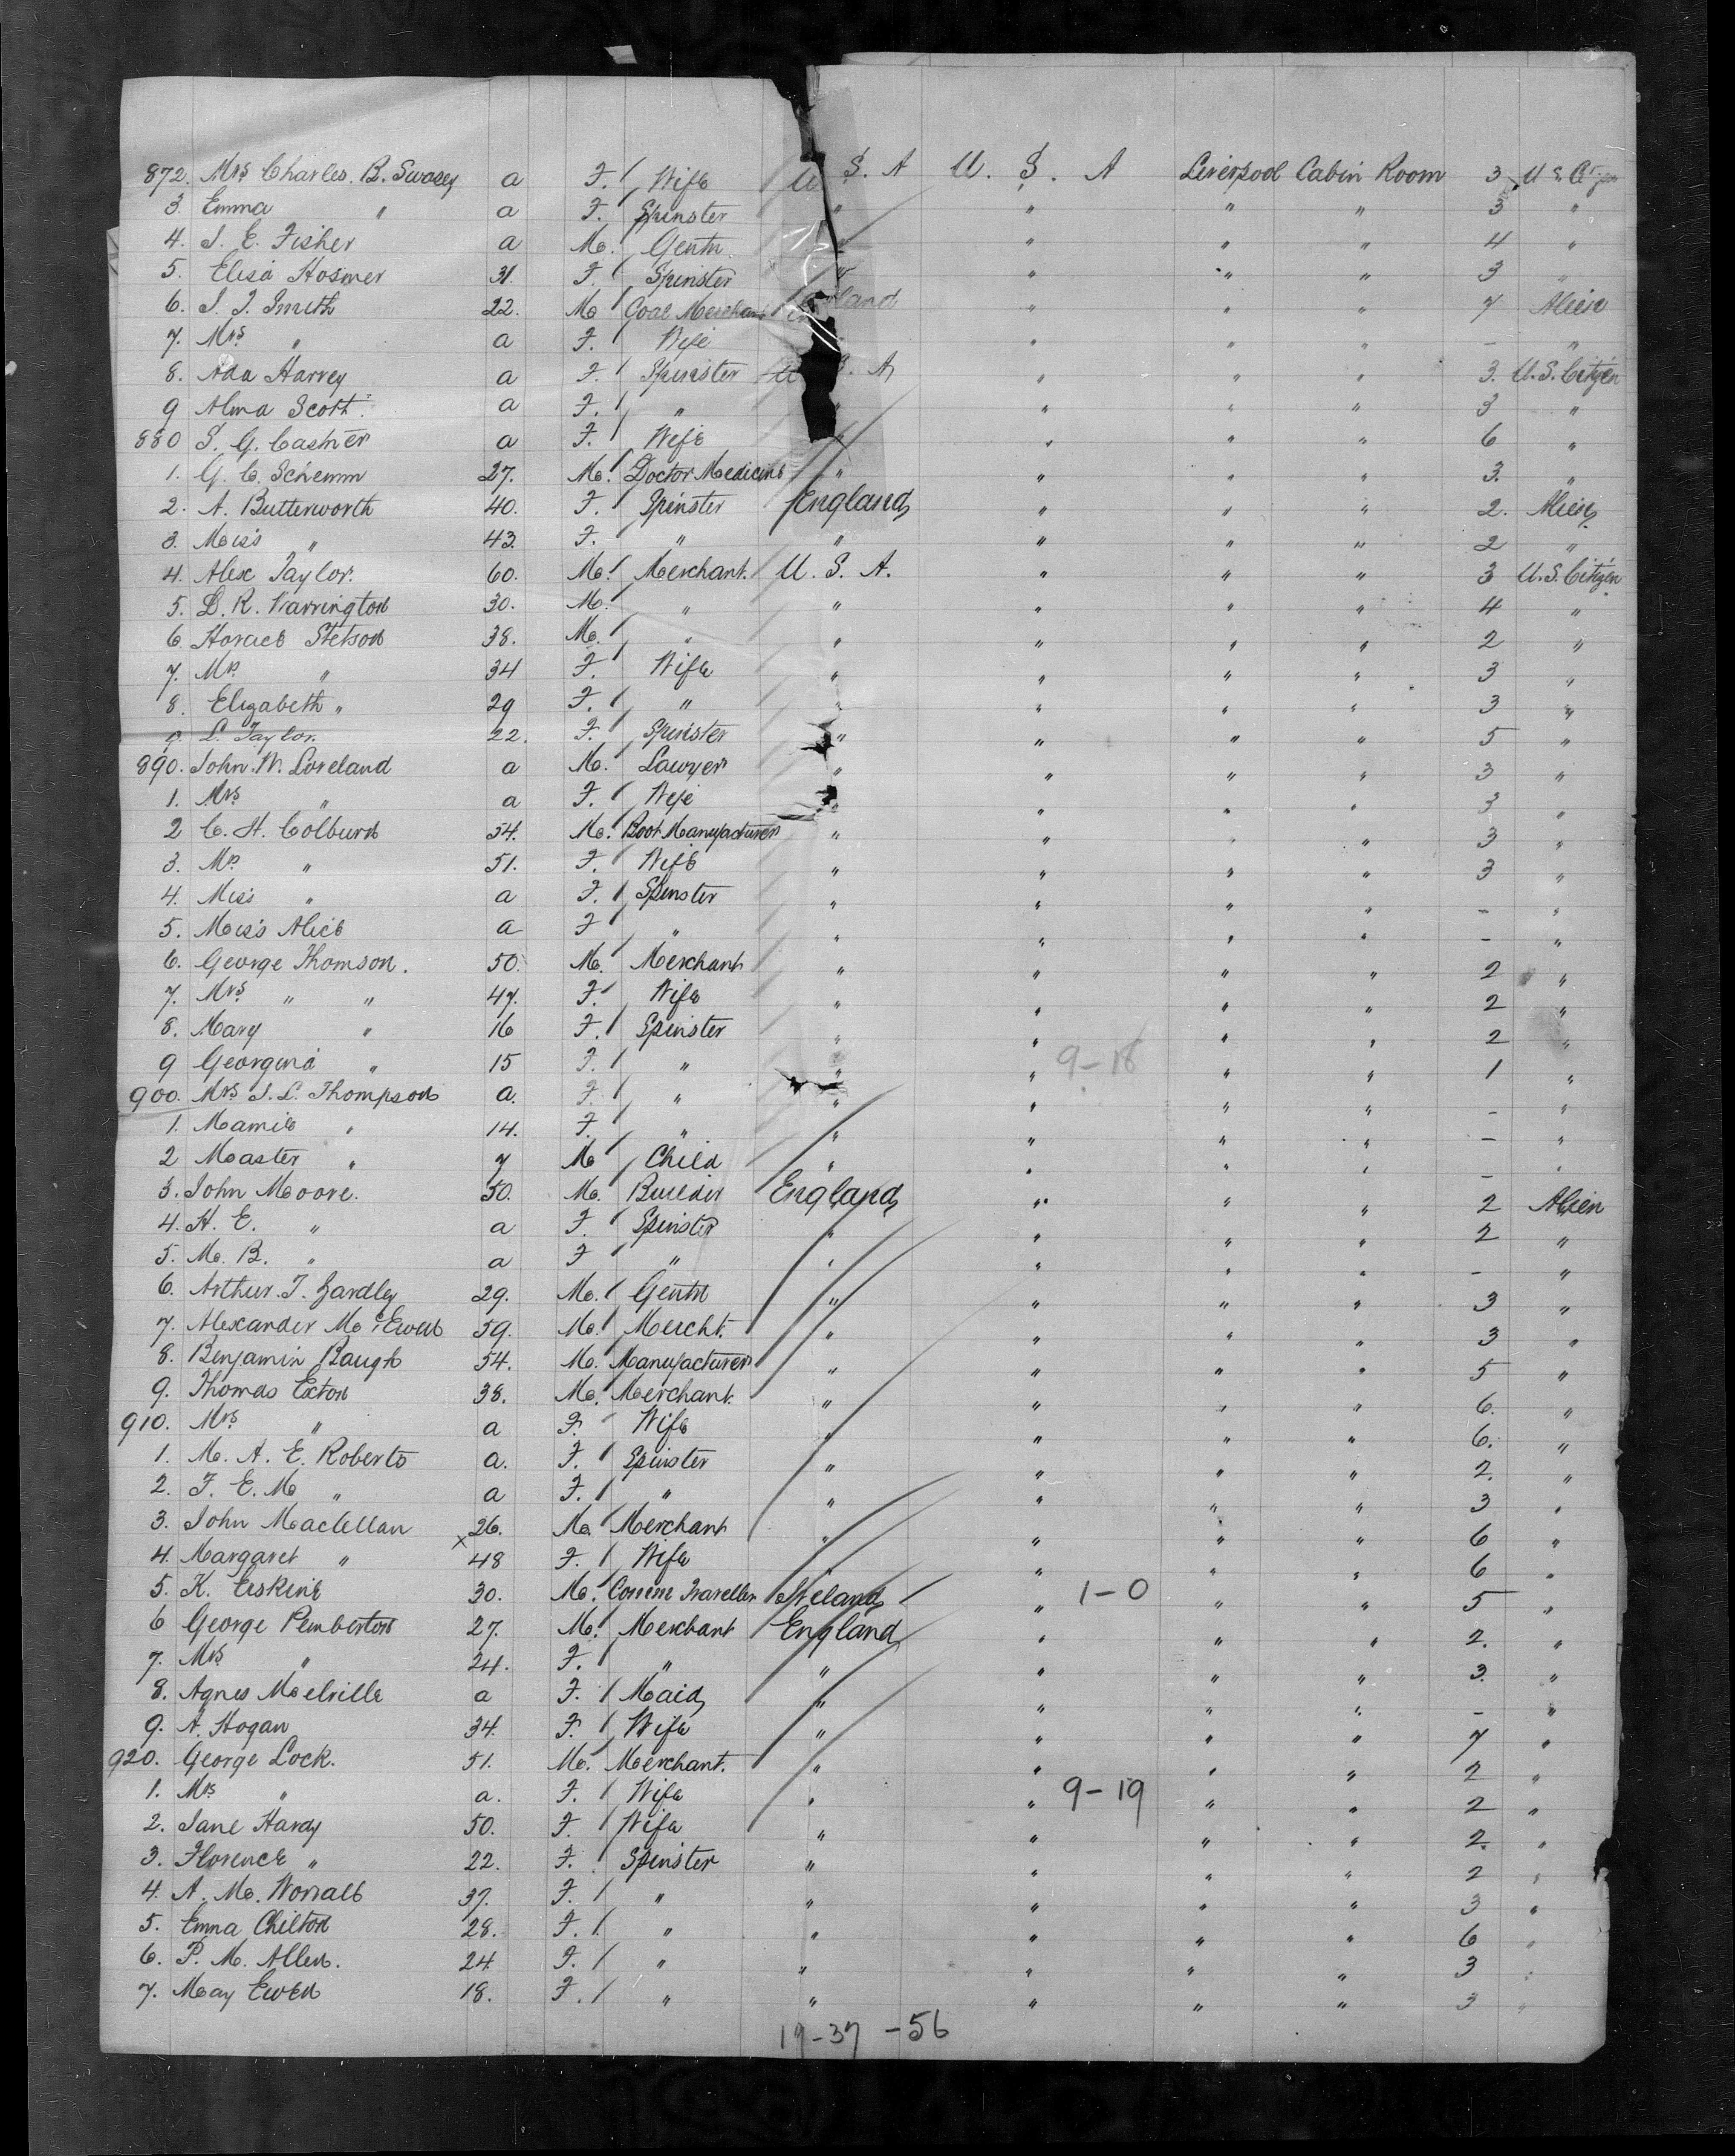 872. Mrs Charles. B. Swasey a F. Wife U S. A U. S. A Liverpool Cabin Room 3 U S Citizen
3. Emma " a F. Spinster " " " " 3 "
4. J. E. Fisher a M. Gentn. " " " 4 "
5. Elisa Hosmer 31. F. Spinster " " " " 3 "
6. J. J. Smith 22. M Coal Merchant England " " " 7 Alien
7. Mrs " a F. Wife " " " - "
8. Ada Harvey a F. Spinster U S. A " " " 3. U.S. Citizen
9 Alma Scott. a F. " " " " " 3 "
880 S. G. Castner a F. Wife " " " " 6 "
1. G. C. Schemm 27. M. Doctor Medicine " " " " 3. "
2. A. Butterworth 40. F. Spinster England " " " 2. Alien
3. Miss " 43. F. " " " " " 2 "
4. Alex Taylor. 60. M. Merchant. U. S. A. " " " 3 U.S. Citizen
5. L. R. Warrington 30. M. " " " " " 4 "
6 Horace Stetson 38. M. " " " " " 2 "
7. Mrs " 34 F. Wife " " " " 3 "
8. Elizabeth " 29 F. " " " " " 3 "
9. L. Taylor. 22. F. Spinster " " " " 5 "
890. John. W. Loveland a M. Lawyer " " " " 3 "
1. Mrs " a F. Wife " " " " 3 "
2 C. H. Colburn 54. M. Boot Manufacturer " " " " 3 "
3. Mrs " 51. F. Wife " " " " 3 "
4. Miss " a F. Spinster " " " " - "
5. Miss Alice a F " " " " " - "
6. George Thomson. 50. M. Merchant " " " " 2 "
7. Mrs " " 47. F. Wife " " " " 2 "
8. Mary " 16 F. Spinster " " " " 2 "
9 Georgina " 15 F. " " " 9-18 " " 1 "
900. Mrs J. L. Thompson a. F. " " " " " - "
1. Mamie " 14. F. " " " " " - "
2 Master " 7 M Child " " " " - "
3. John Moore. 50. M. Builder England " " " 2 Alien
4. H. E. " a F. Spinster " " " " 2 "
5. M. B. " a F " " " " " - "
6. Arthur. T. Yardley 29. M. Gentn " " " " 3 "
7. Alexander McEwen 59. M. Mercht. " " " " 3 "
8. Benjamin Baugh 54. M. Manufacturer " " " " 5 "
9. Thomas Exton 38. M. Merchant. " " " " 6. "
910. Mrs " a F. Wife " " " " 6. "
1. M. A. E. Roberts a. F. Spinster " " " " 2. "
2. F. E. M " a F. " " " " " 3 "
3. John Maclellan 26. M. Merchant " " " " 6 "
4. Margaret " x 48 F. Wife " " " " 6 "
5. K. Erskine 30. M. Comm Traveller Ireland " 1-0 " " 5 "
6 George Pemberton 27. M. Merchant England " " " 2. "
7. Mrs " 24. F. " " " " " 3. "
8. Agnes Melville a F. Maid " " " " - "
9. A. Hogan 34. F. Wife " " " " 7 "
920. George Lock. 51. M. Merchant. " " " " 2 "
1. Mrs " a. F. Wife " " 9-19 " " 2 "
2. Jane Hardy 50. F. Wife " " " " 2. "
3. Florence " 22. F. Spinster " " " " 2 "
4. A. M. Worrall 37. F. " " " " " 3 "
5. Emma Chilton 28. F. " " " " " 6 "
6. P. M. Allen. 24 F. " " " " " 3 "
7. May Ewen 18. F. " " " " " 3 "
19-37-56